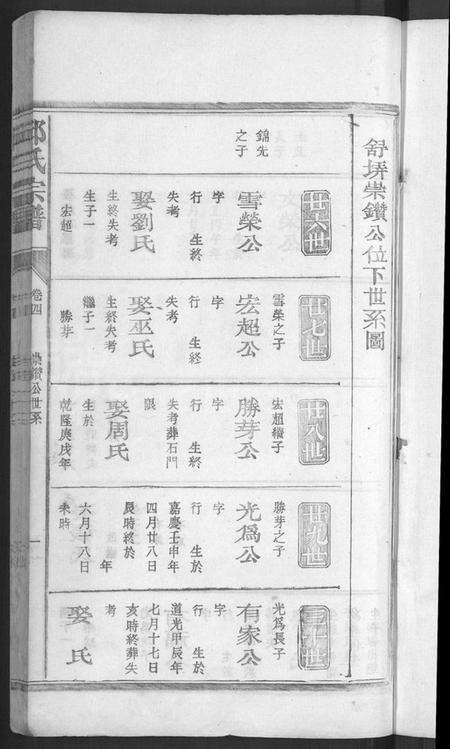 舒塀崇鑽公位下世系圖
廿六世
錦先
之子
雪榮公
字
行 生終
失考
娶劉氏
生終失考
生子一
宏超
廿七世
雪榮之子
宏超公
字
行 生終
失考
娶巫氏
生終失考
繼子一
勝芽
廿八世
宏超續子
勝芽公
字
行 生終
失考葬石門
娶周氏
生於
乾隆庚戌年
六月十八日
未時
廿九世
勝芽之子
光為公
字
行 生於
嘉慶壬申年
四月廿八日
辰時終於
年
三十世
光為長子
有家公
字
行 生於
道光甲辰年
七月十七日
亥時終葬失
考
娶 氏
氏宗譜
卷四
鑽公世系
一